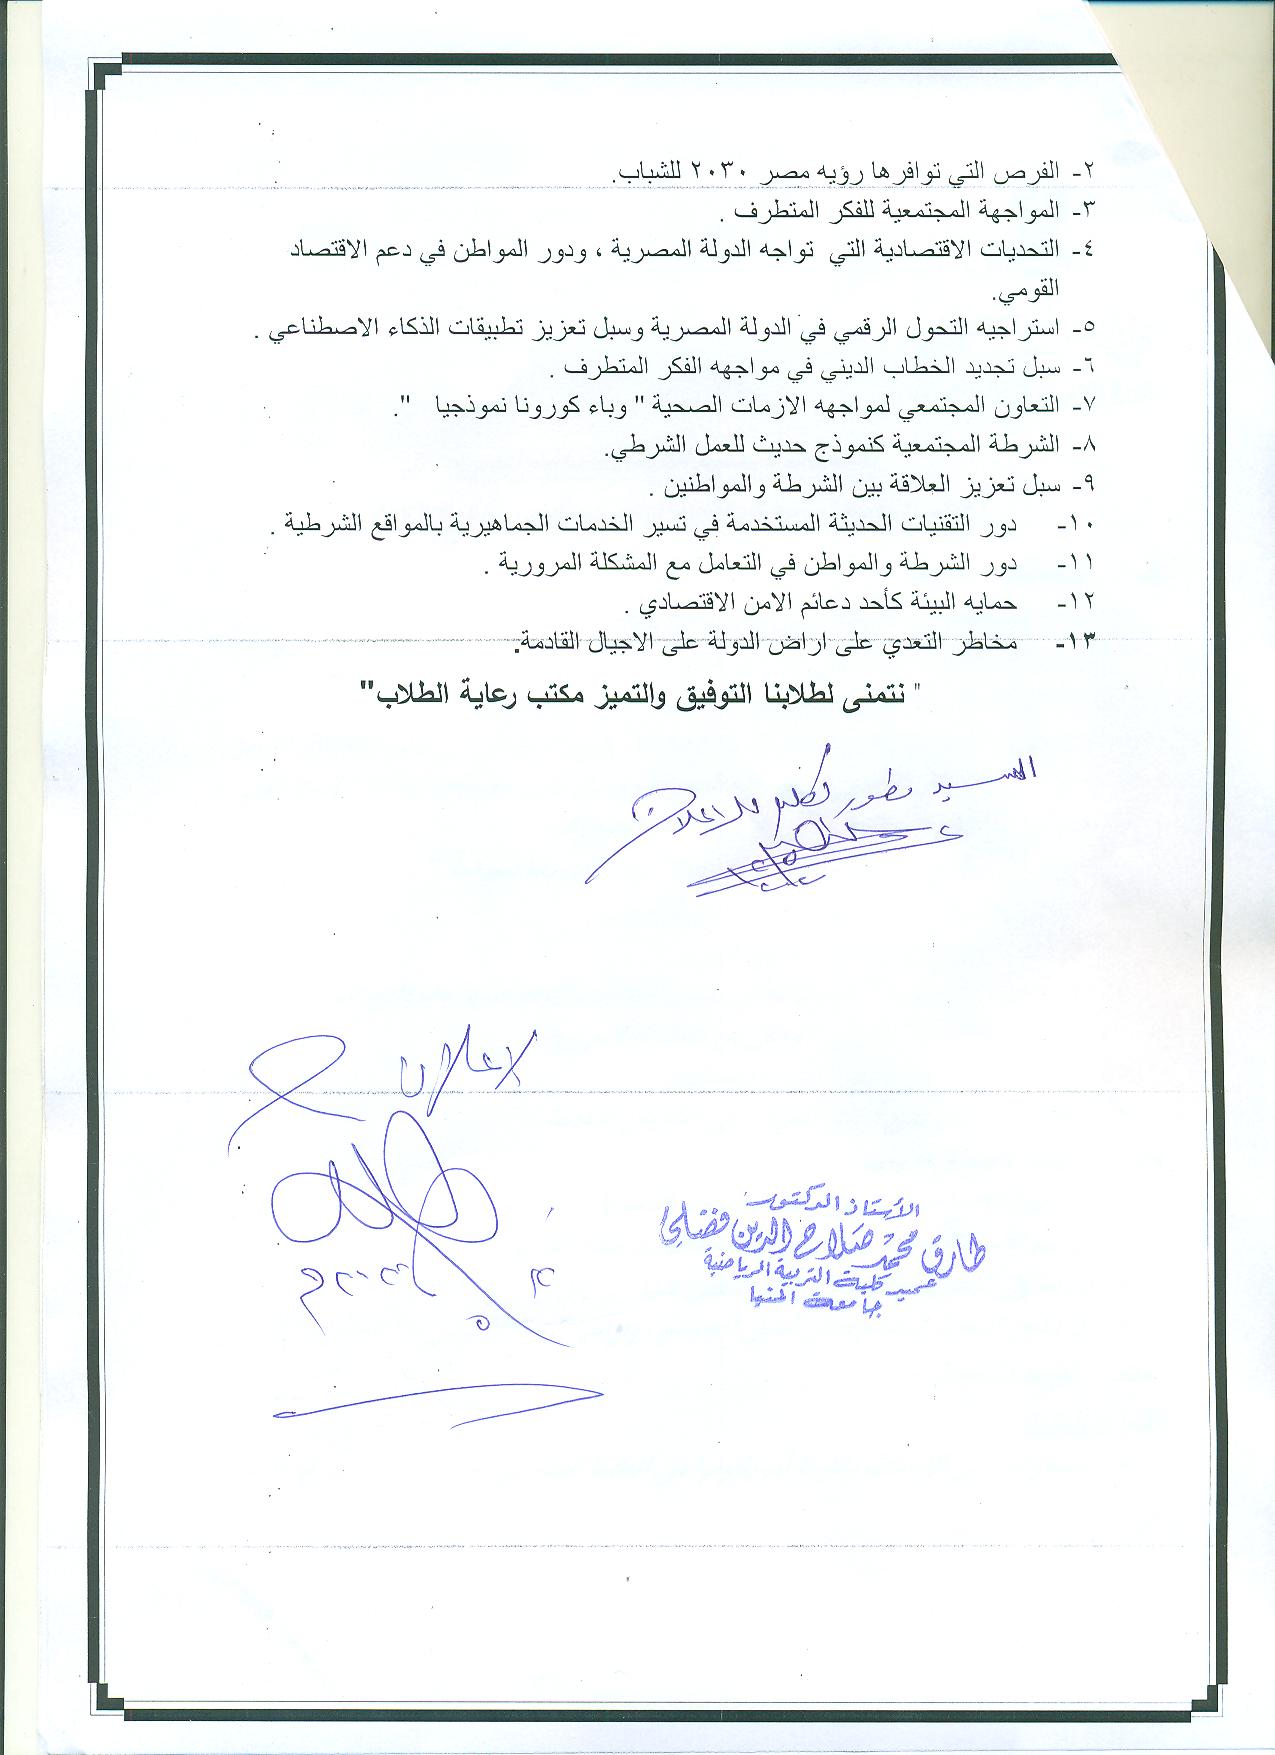 ٢- الفرص التي توافرها رؤيه مصر ٢٠٣٠ للشباب.
٣- المواجهة المجتمعية للفكر المتطرف .
٤- التحديات الاقتصادية التي تواجه الدولة المصرية ، ودور المواطن في دعم الاقتصاد
القومي.
٥- استراجيه التحول الرقمي في الدولة المصرية وسبل تعزيز تطبيقات الذكاء الاصطناعي .
٦- سبل تجديد الخطاب الديني في مواجهه الفكر المتطرف .
٧- التعاون المجتمعي لمواجهه الازمات الصحية " وباء كورونا نموذجيا ".
٨- الشرطة المجتمعية كنموذج حديث للعمل الشرطي.
٩- سبل تعزيز العلاقة بين الشرطة والمواطنين .
١٠- دور التقنيات الحديثة المستخدمة في تسير الخدمات الجماهيرية بالمواقع الشرطية .
١١- دور الشرطة والمواطن في التعامل مع المشكلة المرورية .
١٢- حمايه البيئة كأحد دعائم الامن الاقتصادي .
١٣- مخاطر التعدي على اراض الدولة على الاجيال القادمة.
" نتمنى لطلابنا التوفيق والتميز مكتب رعاية الطلاب"
السيد
الأستاذ الدكتور
طارق محمد صلاح الدين فضلي
عميد كلية التربية الرياضية
جامعة المنيا